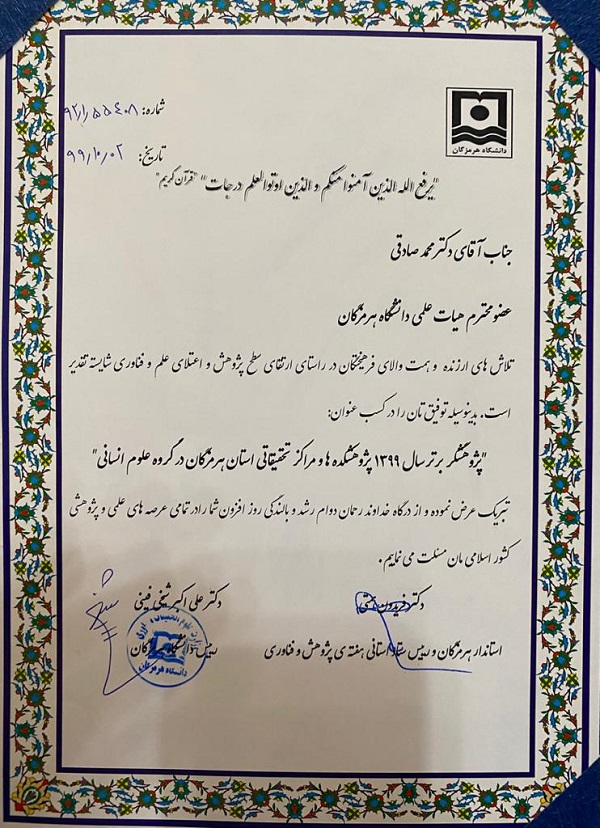 شماره: ۹۲/۱/۵۵۴۰۸
دانشگاه هرمزگان
تاریخ: ۹۹/۱۰/۰۲
"یرفع الله الذین آمنوا منکم و الذین اوتوالعلم درجات" "قرآن کریم"
جناب آقای دکتر محمد صادقی
عضو محترم هیات علمی دانشگاه هرمزگان
تلاش های ارزنده و همت والای فرهیختگان در راستای ارتقای سطح پژوهش و اعتلای علم و فناوری شایسته تقدیر
است. بدینوسیله توفیق تان را در کسب عنوان:
"پژوهشگر برتر سال ۱۳۹۹ پژوهشکده ها و مراکز تحقیقاتی استان هرمزگان در گروه علوم انسانی"
تبریک عرض نموده و از درگاه خداوند رحمان دوام رشد و بالندگی روز افزون شما را در تمامی عرصه های علمی و پژوهشی
کشور اسلامی مان مسئلت می نماییم.
دکتر فریدون همتی
دکتر علی اکبر شیخی فینی
استاندار هرمزگان و رییس ستاد استانی هفته ی پژوهش و فناوری
رییس دانشگاه هرمزگان
دانشگاه هرمزگان